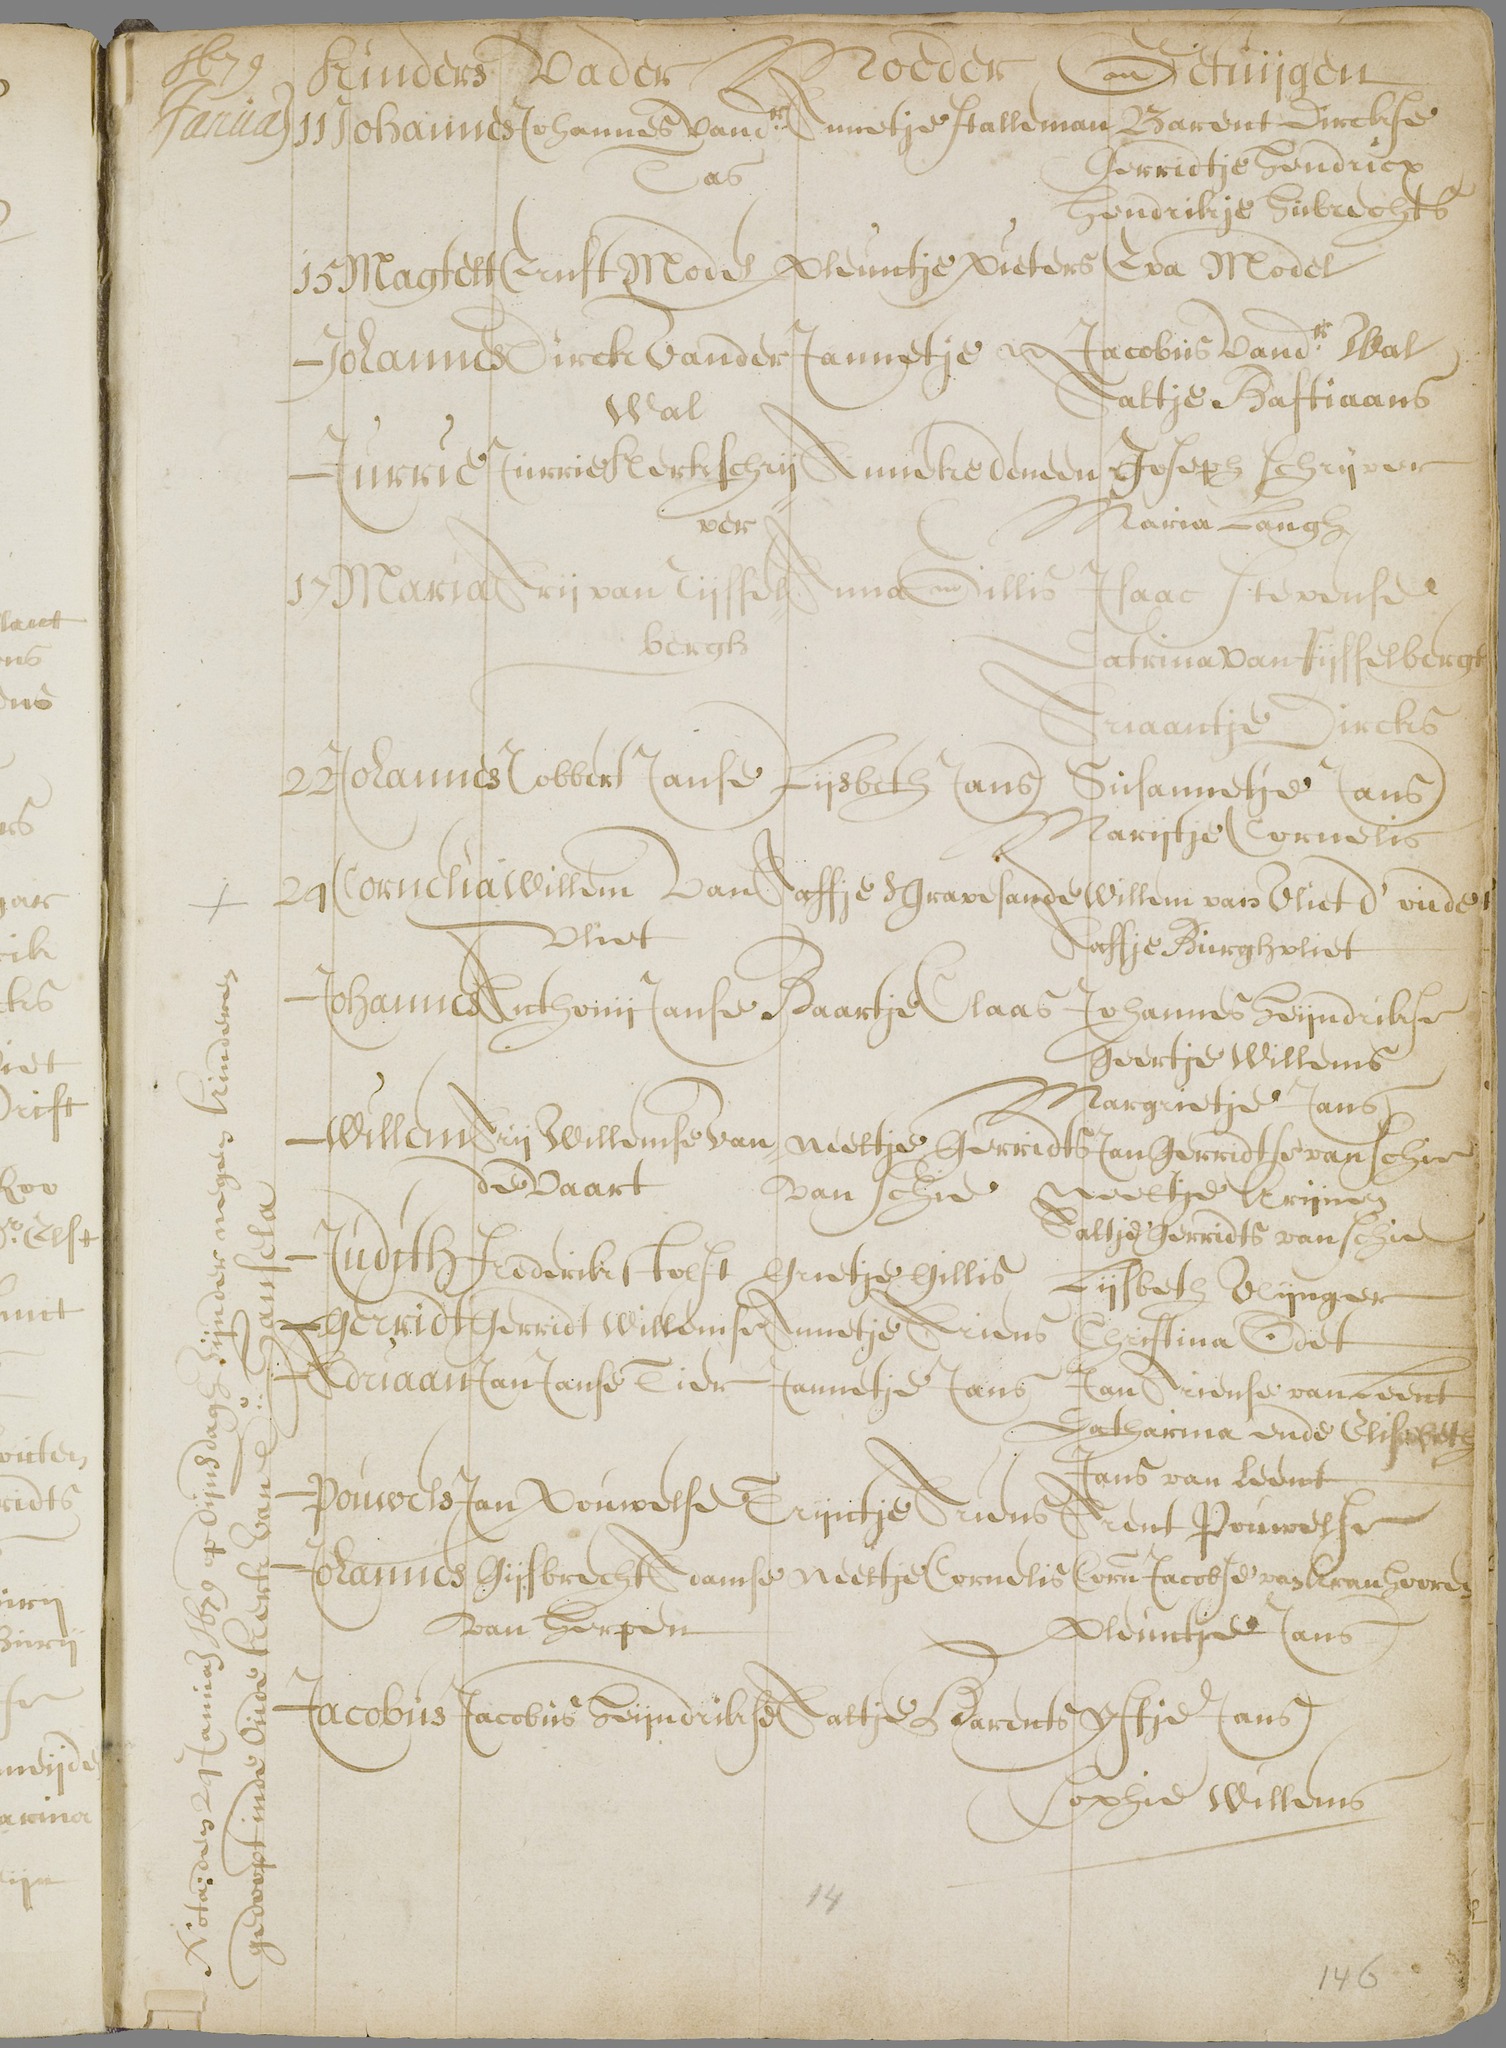 1679 Kinders Vader Moeder Getuijgen
Januari 11 Johannes Johannes vandr Annetje Stalleman Barent Dirckse
Tas Gerridtje Hendricx
Hendrikje Hubrechts
15 Magtelt Ernst Model Pleuntje Pieters Eva Model
Johannes Dirck Vander Jannetje Jacobus Vandr Wal
Wal Saltje Bastiaans
Jurrie Jurrie Klerk schrij Anneke deneen Joseph schrijver
ver Maria Langh
17 Maria Arij van Tijffel Anna Gillis Isaac Stevense
bergh Catrina van Tijffelbergh
Ariaantje Dircks
22 Johannes Cobbert Janse Lijsbeth Jans Susannetje Jans
Marijtje Cornelis
24 Cornelia Willem Van Saffje s'Gravesande Willem van Vliet d' oude
Vliet Saffje Burghvliet
Johannes Anthonij Janse Baartje Claas Johannes Heijndrikse
Geertje Willems
Margrietje Jans
Willem Arij Willemse Van Neeltje Gerridts Jan Gerridtse van Schie
de Vaart van Schie Neeltje Krijnen
Saltje Gerridts van Schie
Judith Frederik Stolst Grietje Gillis Lijsbeth Vlijnger
Gerridt Gerridt Willemse Annetje Ariens Christina Odet
Adriaan Jan Janse Tier Jannetje Jans Jan Ariense van Leent
Catharina ende Elisabeth
Jans van Leent
Pouwels Jan Pouwelse Trijntje Ariens Arent Pouwelse
Johannes Gijsbrecht Adamse Neeltje Cornelis Corn Jacobse van Kranhooren
van Herpen Pleuntje Jans
Jacobus Jacobus Heijndrikse Saltje Barents Ytje Jans
Sophie Willems
14
146
Nota: den 24 Januari 1679 op dijnsdagh zijnder negen kinderen
gedoopt inde Oude Kerk van D: Hamsela